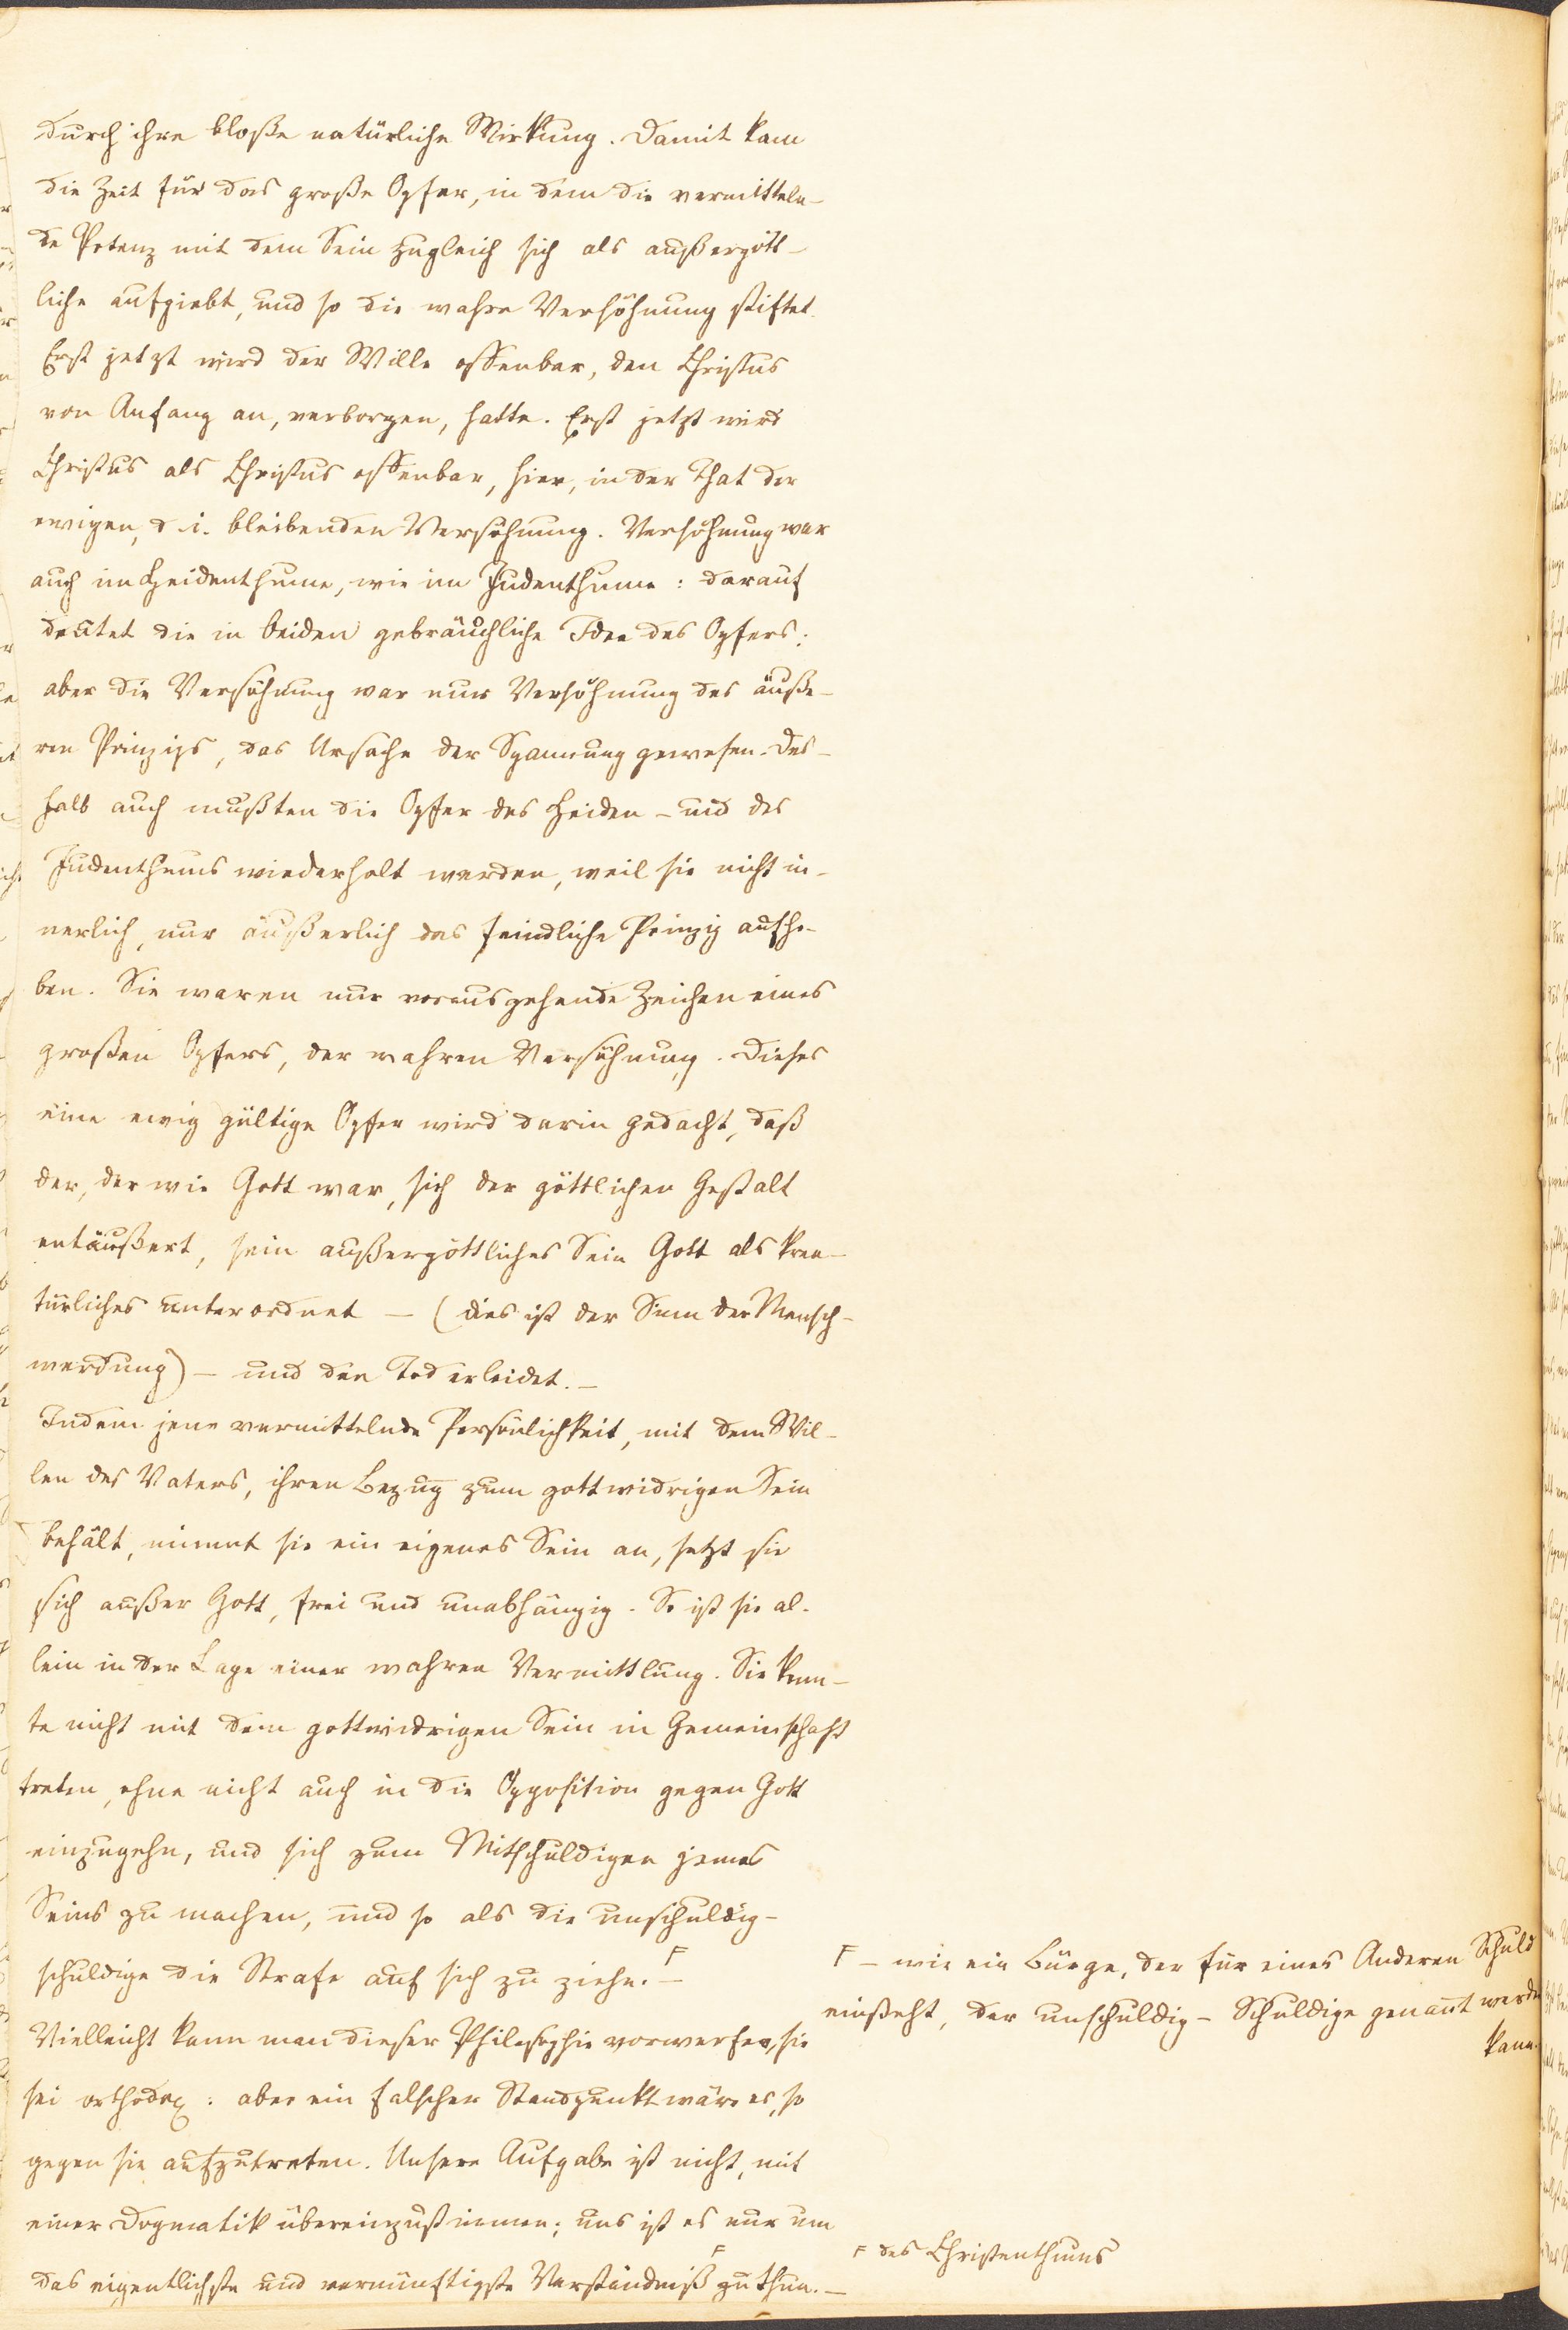 durch ihre bloße natürliche Wirkung. Damit kam
die Zeit für das große Opfer, in dem die vermitteln-
de Potenz mit dem Sein zugleich sich als außergött-
liche aufgiebt, und so die wahre Versöhnung stiftet.
Erst jetzt wird der Wille offenbar, den Christus
von Anfang an, verborgen, hatte. Erst jetzt wird
Christus als Christus offenbar, hier, in der That der
ewigen, d. i. bleibenden Versöhnung. Versöhnung war
auch im Heidenthume, wie im Judenthume: darauf
deutet die in beiden gebräuchliche Idee des Opfers:
aber die Versöhnung war nur Versöhnung des äuße-
ren Prinzips, das Ursache der Spannung gewesen. Des-
halb auch mußten die Opfer des Heiden- und des
Judenthums wiederholt werden, weil sie nicht in-
nerlich, nur äußerlich das feindliche Prinzip aufho-
ben. Sie waren nur vorausgehende Zeichen eines
großen Opfers, der wahren Versöhnung. Dieses
eine ewig gültige Opfer wird darin gedacht, daß
der, der wie Gott war, sich der göttlichen Gestalt
entäußert, sein außergöttliches Sein Gott als krea-
türliches unterordnet – (dies ist der Sinn der Mensch-
werdung) – und den Tod erleidet. –
Indem jene vermittelnde Persönlichkeit, mit dem Wil-
len des Vaters, ihren Bezug zum gottwidrigen Sein
behält, nimmt sie ein eigenes Sein an, setzt sie
sich außer Gott, frei und unabhängig. So ist sie al-
lein in der Lage einer wahren Vermittlung. Sie konn-
te nicht mit dem gottwidrigen Sein in Gemeinschaft
treten, ohne nicht auch in die Opposition gegen Gott
einzugehn, und sich zum Mitschuldigen jenes
Seins zu machen, und so als die unschuldig-
schuldige die Strafe auf sich zu ziehn. F –
F – wie ein Bürge, der für eines Anderen Schuld
einsteht, der unschuldig-Schuldige genannt werden
kann.
Vielleicht kann man dieser Philosophie vorwerfen, sie
sei orthodox: aber ein falscher Standpunkt wäre es, so
gegen sie aufzutreten. Unsere Aufgabe ist nicht, mit
einer Dogmatik übereinzustimmen; uns ist es nur um
das eigentlichste und vernünftigste Verständniß F zu thun. –
F des Christenthums